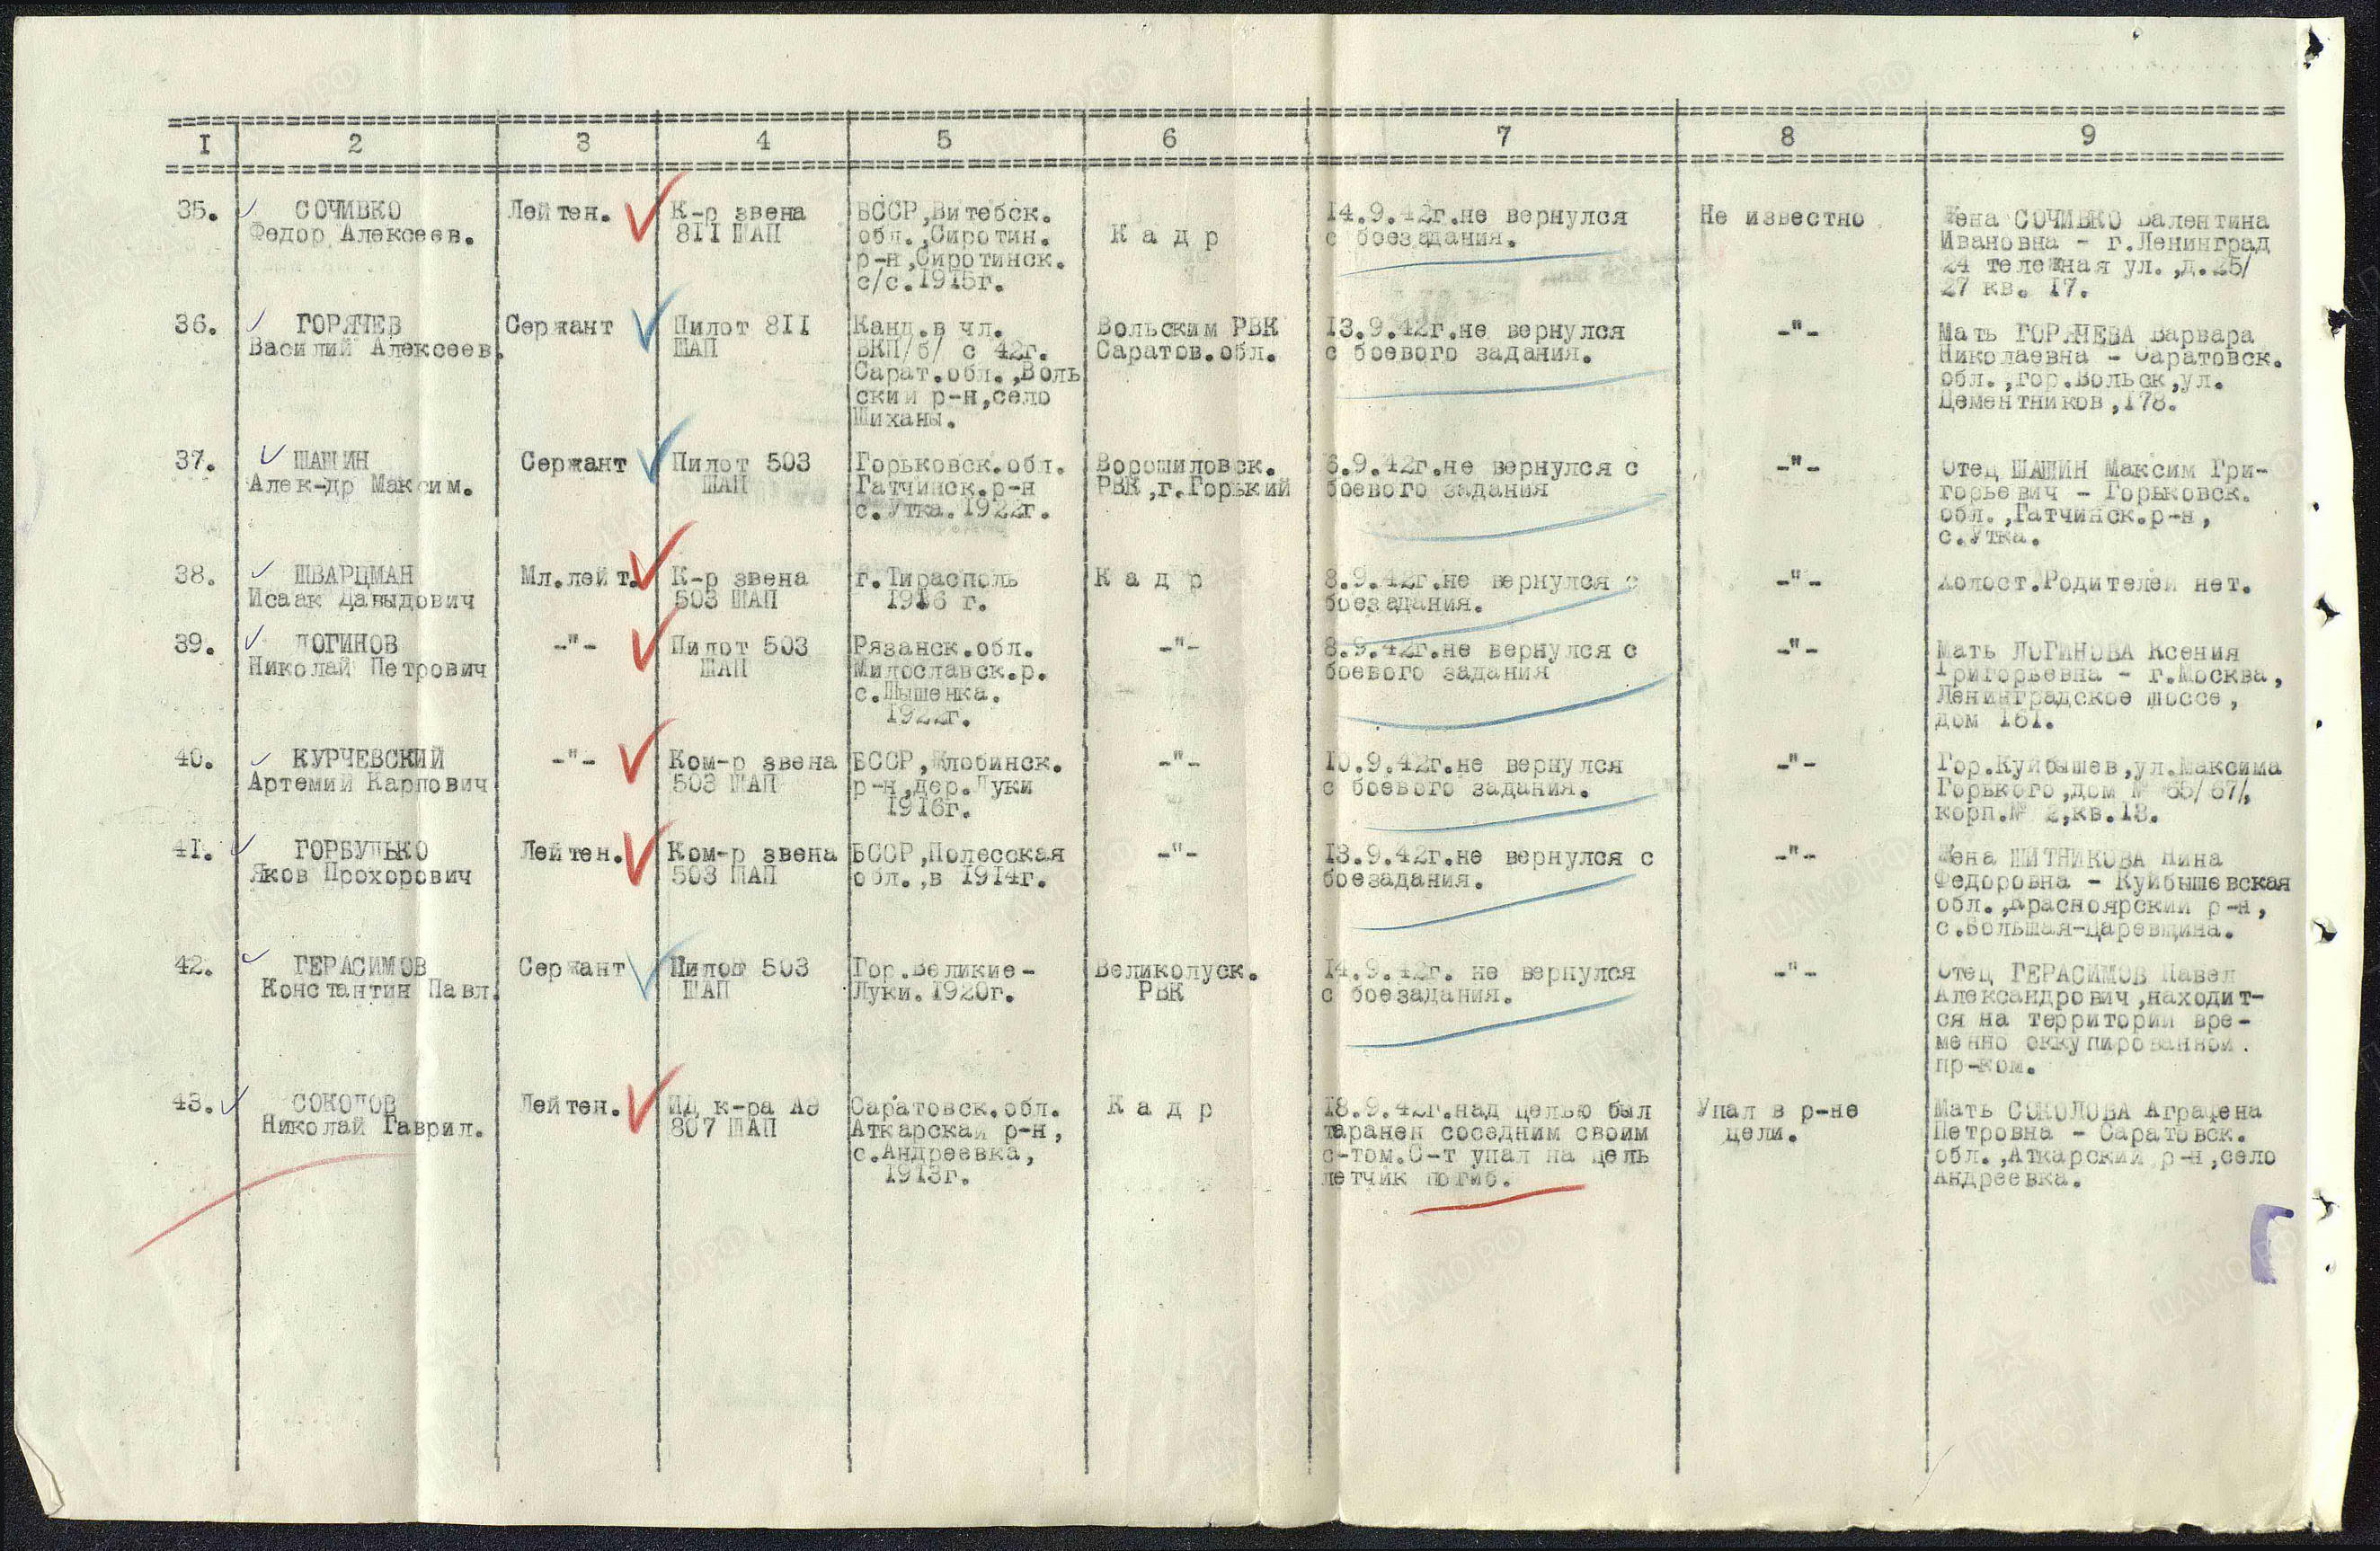 I 2 3 4 5 6 7 8 9
35. СОЧИВКО
Федор Алексеев.
Лейтен.
К-р звена
8II ШАП
БССР,Витебск.
обл.,Сиротин.
р-н,Сиротинск.
с/с.1915г.
К а д р
14.9.42г.не вернулся
с боезадания.
Не известно
Жена СОЧИВКО Валентина
Ивановна - г.Ленинград
24 тележная ул.,д.25/
27 кв. I7.
36. ГОРЯЧЕВ
Василий Алексеев.
Сержант
Пилот 8II
ШАП
Канд.в чл.
ВКП/б/ с 42г.
Сарат.обл.,Воль
ский р-н,село
Шиханы.
Вольским РВК
Саратов.обл.
I3.9.42г.не вернулся
с боевого задания.
-"-
Мать ГОРЯЧЕВА Варвара
Николаевна - Саратовск.
обл.,гор.Вольск,ул.
Цементников,I78.
37. ШАШИН
Алек-др Максим.
Сержант
Пилот 503
ШАП
Горьковск.обл.
Гатчинск.р-н
с.Утка.1922г.
Ворошиловск.
РВК,г.Горький
6.9.42г.не вернулся с
боевого задания
-"-
Отец ШАШИН Максим Гри-
горьевич - Горьковск.
обл.,Гатчинск.р-н,
с.Утка.
38. ШВАРЦМАН
Исаак Давыдович
Мл.лейт.
К-р звена
503 ШАП
г.Тирасполь
1916 г.
К а д р
8.9.42г.не вернулся с
боезадания.
-"-
Холост.Родителей нет.
39. ЛОГИНОВ
Николай Петрович
-"-
Пилот 503
ШАП
Рязанск.обл.
Милославск.р.
с.Шышенка.
1922г.
-"-
8.9.42г.не вернулся с
боевого задания
-"-
Мать ЛОГИНОВА Ксения
Григорьевна - г.Москва,
Ленинградское шоссе,
дом I6I.
40. КУРЧЕВСКИЙ
Артемий Карпович
-"-
Ком-р звена
503 ШАП
БССР,Жлобинск.
р-н,дер.Луки
1916г.
-"-
I0.9.42г.не вернулся
с боевого задания.
-"-
Гор.Куйбышев,ул.Максима
Горького,дом № 65/67/,
корп.№ 2,кв.I3.
4I. ГОРБУЛЬКО
Яков Прохорович
Лейтен.
Ком-р звена
503 ШАП
БССР,Полесская
обл.,в 1914г.
-"-
I3.9.42г.не вернулся с
боезадания.
-"-
Жена ШИТНИКОВА Нина
Федоровна - Куйбышевская
обл.,Красноярский р-н,
с.Большая-Царевщина.
42. ГЕРАСИМОВ
Константин Павл.
Сержант
Пилот 503
ШАП
Гор.Великие-
Луки.1920г.
Великолуск.
РВК
I4.9.42г. не вернулся
с боезадания.
-"-
Отец ГЕРАСИМОВ Павел
Александрович,находит-
ся на территории вре-
менно оккупированной
пр-ком.
43. СОКОЛОВ
Николай Гаврил.
Лейтен.
ИД к-ра АЭ
807 ШАП
Саратовск.обл.
Аткарский р-н,
с.Андреевка,
1913г.
К а д р
I8.9.42г.над целью был
таранен соседним своим
с-том.С-т упал на цель
летчик погиб.
Упал в р-не
цели.
Мать СОКОЛОВА Аграфена
Петровна - Саратовск.
обл.,Аткарский р-н,село
Андреевка.